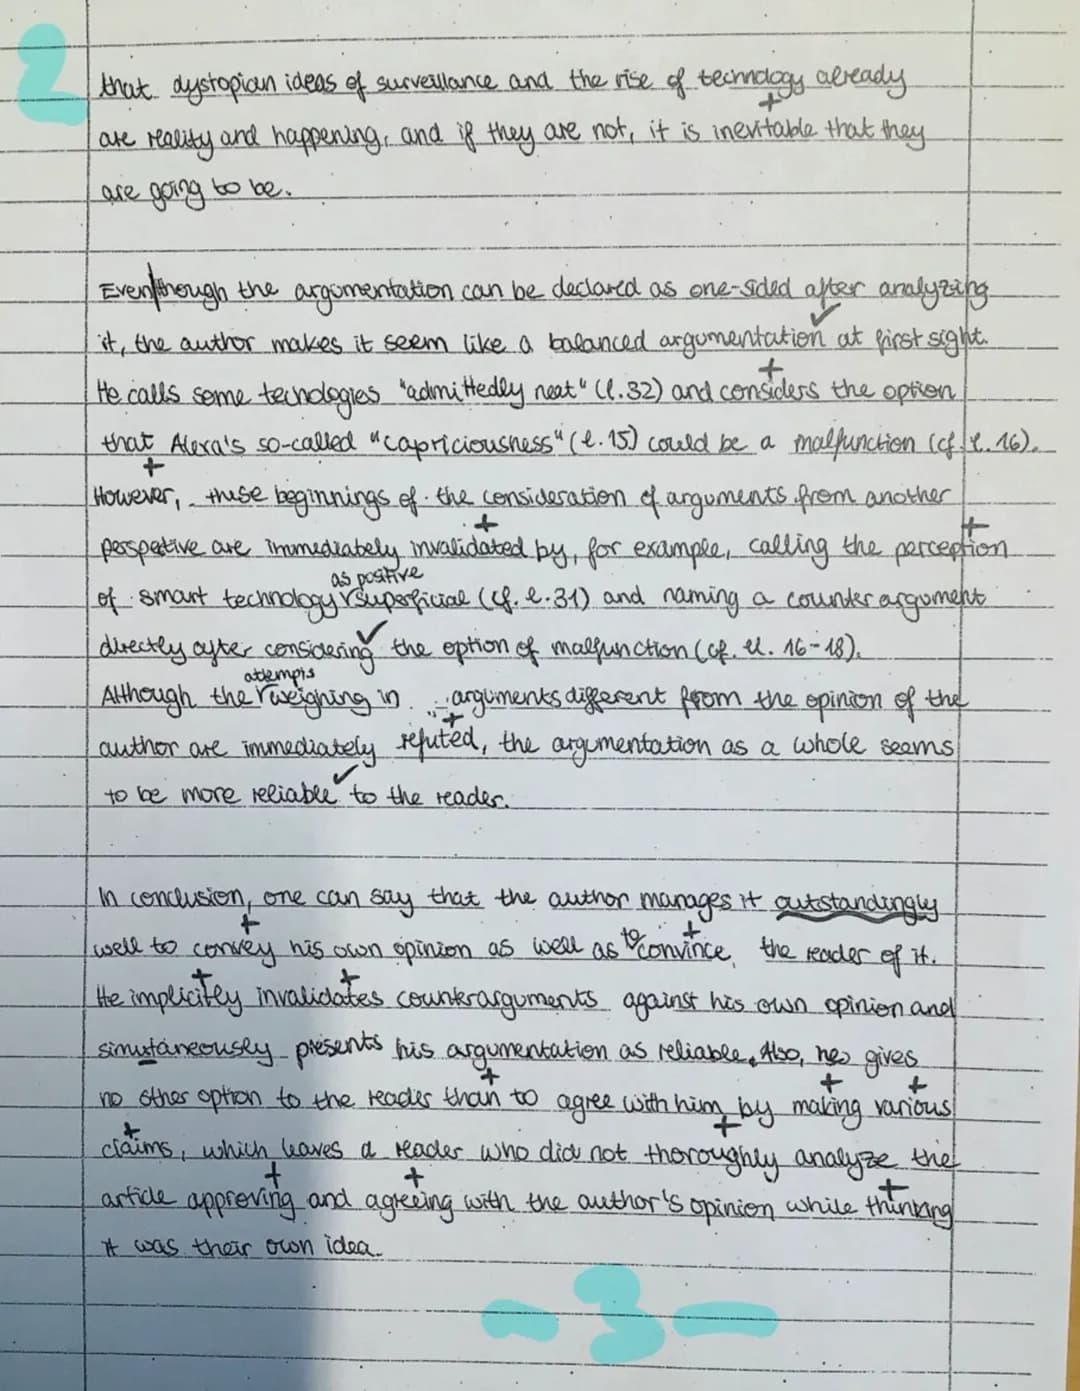 2
that dystopian ideas of surveillance and the rise of technology already
are reality and happening, and if they are not, it is inevitable that they
are going to be.
Even though the argumentation can be declared as one-sided after analyzing
it, the author makes it seem like a balanced argumentation at first sight.
He calls some technologies "admittedly neat" (l.32) and considers the option
that Alexa's so-called "capriciousness" (l.15) could be a malfunction (cf. l. 16).
However, these beginnings of the consideration of arguments from another
perspective are immediately invalidated by, for example, calling the perception
as positive
of smart technology superficial (cf. l.31) and naming a counterargument
directly after considering the option of malfunction (cf. ll. 16-18).
attempts
Although the weighing in arguments different from the opinion of the
author are immediately refuted, the argumentation as a whole seems
to be more reliable to the reader.
In conclusion, one can say that the author manages it outstandingly
well to convey his own opinion as well as to convince the reader of it.
He implicitly invalidates counterarguments against his own opinion and
simutaneously presents his argumentation as reliable. Also, he gives
no other option to the reader than to agree with him by making various
claims, which leaves a reader who did not thoroughly analyze the
article approving and agreeing with the author's opinion while thinking
it was their own idea.
- 3 -